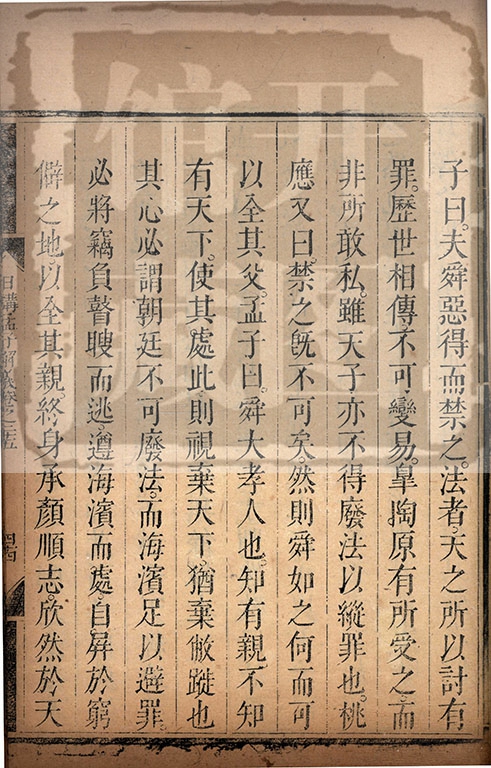 子曰。夫舜惡得而禁之。法者。天之所以討有
罪。歷世相傳。不可變易。皐陶原有所受之。而
非所敢私。雖天子亦不得廢法以縱罪也。桃
應又曰。禁之旣不可矣。然則舜如之何而可
以全其父。孟子曰。舜大孝人也。知有親不知
有天下。使其處此。則視棄天下。猶棄敝蹝也
其心必謂朝廷不可廢法。而海濱足以避罪。
必將竊負瞽瞍而逃。遵海濱而處。自屏於窮
僻之地。以全其親。終身承顏順志。欣然於天
日講孟子解義卷之